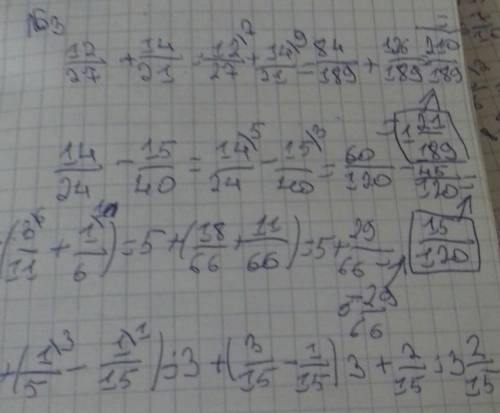 №3
12/27 + 14/21 = 12\7/27 + 14\9/21 = 84/189 + 126/189 = 210/189 = 1 21/189
14/24 - 15/40 = 14\5/24 - 15\3/40 = 60/120 - 45/120 = 15/120
+(3\6/11 + 1\/6) = 5 + (18/66 + 11/66) = 5 + 29/66 = 5 29/66
+(1\3/5 - 1\1/15) = 3 + (3/15 - 1/15) 3 + 2/15 = 3 2/15